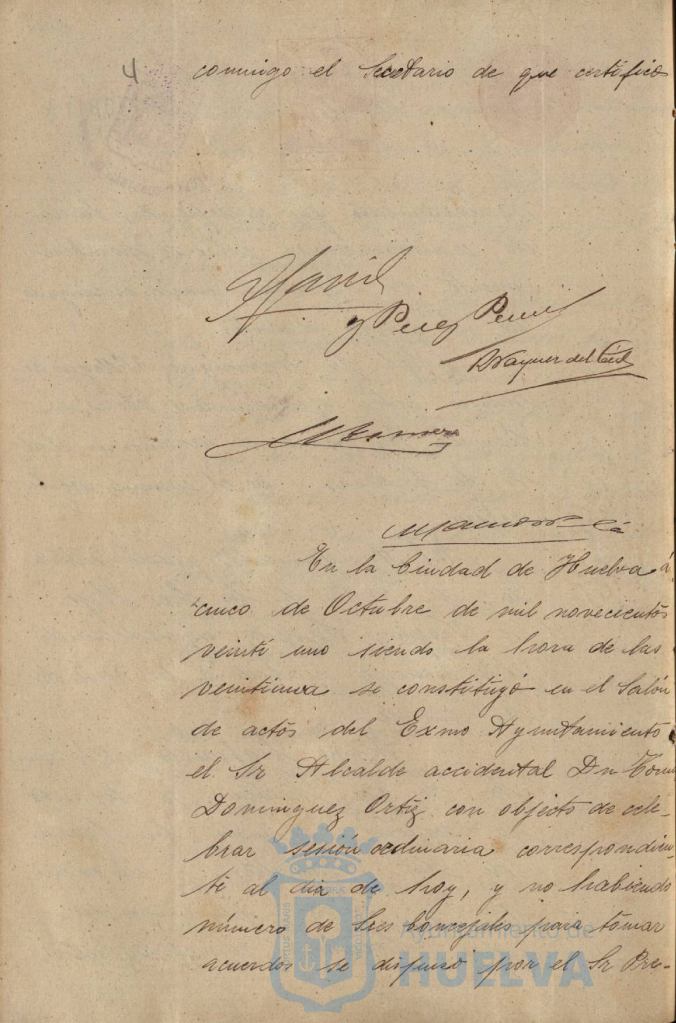 4
comingo el Secretario de que certifico
y Perez
En la Ciudad de Huelva á
cinco de Octubre de mil novecientos
veinti uno siendo la hora de las
veintiuna se constituyó en el Salón
de actos del Exmo Ayuntamiento
el Sr Alcalde accidental Dn
Dominguez Ortiz con objeto de cele-
brar sesión ordinaria correspondien-
te al dia de hoy, y no habiendo
número de Sres Concejales para tomar
acuerdos se dispuso por el Sr Pre-
Ayuntamiento de
HUELVA